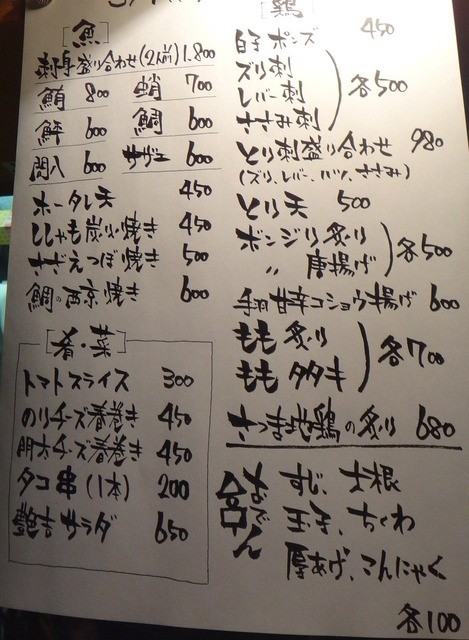 [魚]
刺身盛り合わせ(2人前)1.800
鮪 800
蛸 700
鮃 600
鯛 600
間八 600
サザエ 600
ホータレ天 450
ししゃも炭火焼き 450
さざえつぼ焼き 500
鯛の西京焼き 600
[肴・菜]
トマトスライス 300
のりチーズ春巻き 450
明太チーズ春巻き 450
タコ串(1本) 200
艶吉サラダ 650
[鶏]
白子ポンズ 450
ズリ刺
レバー刺
ささみ刺
各500
とり刺盛り合わせ 980
(ズリ、レバー、ハツ、ささみ)
とり天 500
ボンジリ炙り
〃 唐揚げ
各500
手羽甘辛コショウ揚げ 600
もも炙り
ももタタキ
各700
さつま地鶏の炙り 680
おでん
すじ、大根
玉子、ちくわ
厚あげ、こんにゃく
各100